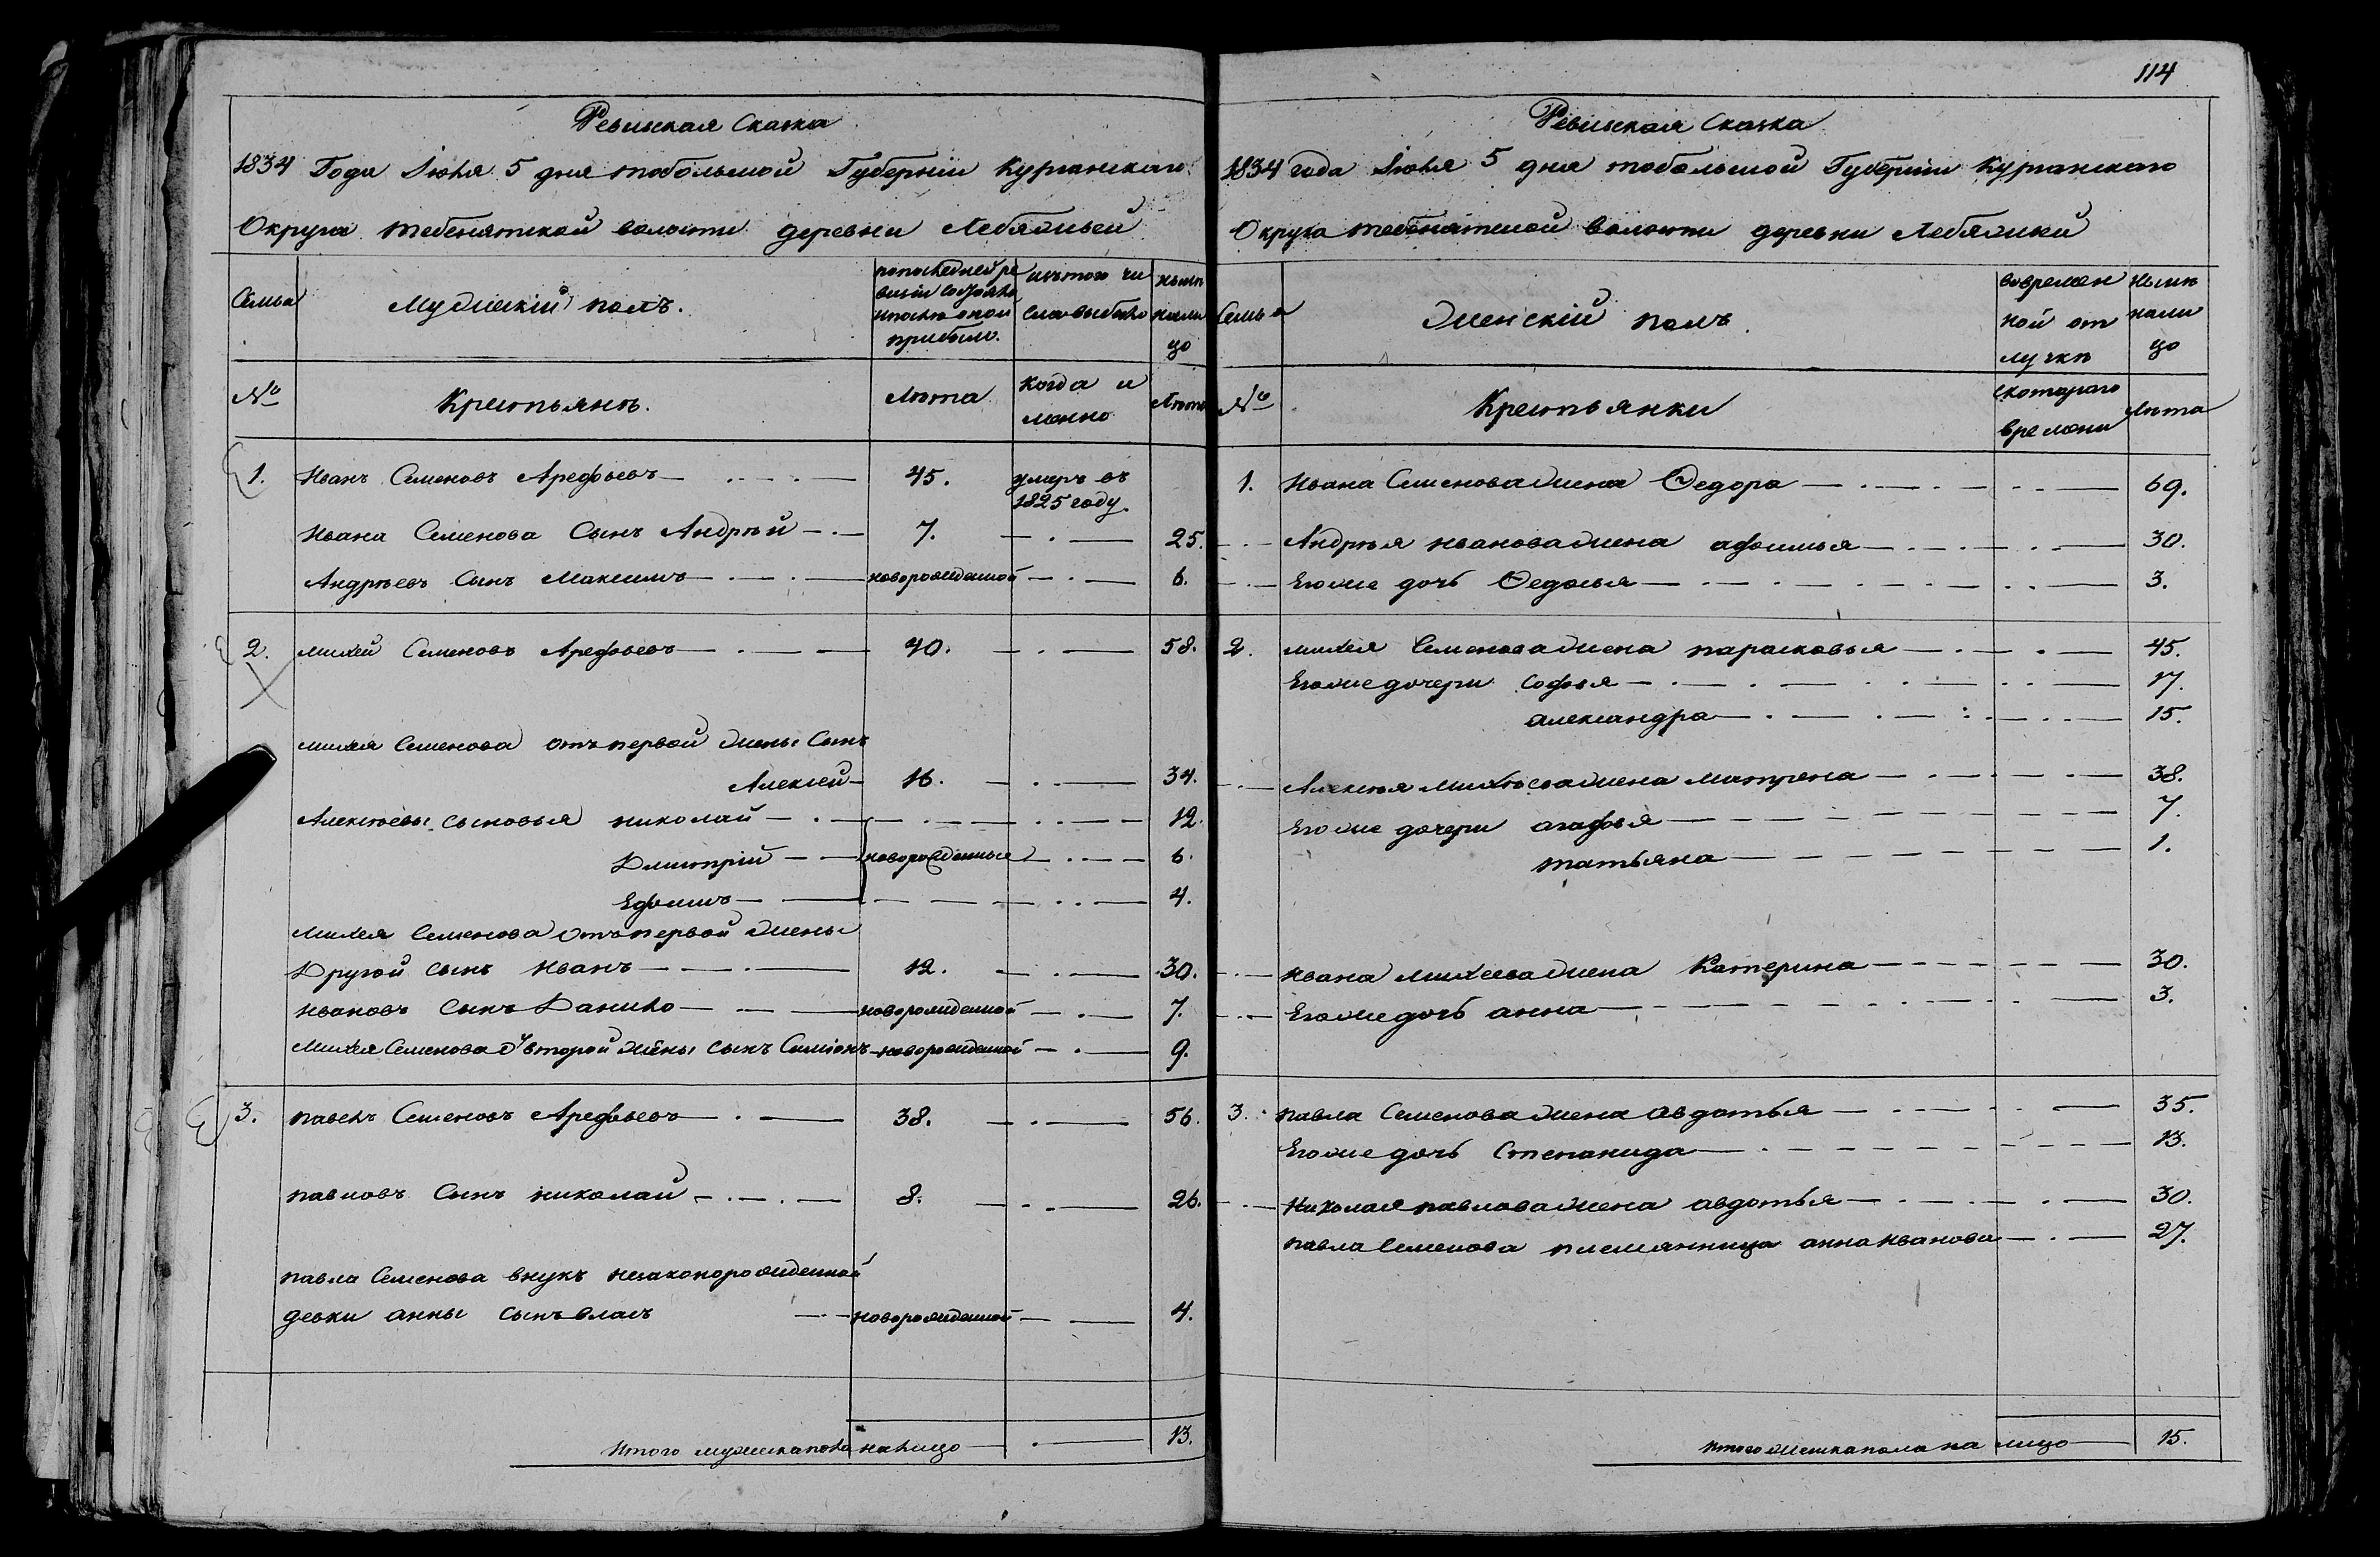 Ревизская Сказка
1834 Года Іюля 5 дня тобольской Губерніи Курганскаго
Округа тебенятской волости деревни Лебяжьей
Семьи
Мужескій полъ.
по последней ре
визіи состояло
и после оной
прибыло.
изъ того чи
сла выбыло
ныне
нали
цо
№
Крестьяне.
Лета
когда и
менно
Лета
1. Иванъ Семеновъ Арефьевъ 45. умеръ въ
1825 году.
Ивана Семенова Сынъ Андрей 7. 25.
Андреевъ Сынъ Максимъ новорожденной 6.
2. михей Семеновъ Арефьевъ 40. 58.
михея Семенова отъ первой жены Сынъ
Алексей 16. 34.
Алексеевы сыновья николай 12.
Дмитрій новорожденные 6.
Ефимъ 4.
Михея Семенова отъ первой жены
Другой сынъ Иванъ 12. 30.
Ивановъ Сынъ Данило новорожденной 7.
Михея Семенова второй жены сынъ Симіонъ новорожденной 9.
3. павелъ Семеновъ Арефьевъ 38. 56.
павловъ Сынъ николай 8. 26.
павла Семенова внукъ незаконорожденной
девки анны сынъ власъ новорожденной 4.
Итого мужеска пола на лицо 13.
114
Ревизская Сказка
1834 года Іюля 5 дня тобольской Губерніи Курганскаго
Округа тебенятской волости деревни Лебяжьей
Семья
Женскій полъ.
во времен
ной от
лучке
Ныне
нали
цо
№
Крестьянки
с котораго
времени
Лета
1. Ивана Семенова жена Федора 69.
Андрея иванова жена афимья 30.
Егоже дочь Федосья 3.
2. михея Семенова жена парасковья 45.
Егоже дочери Софья 17.
александра 15.
Алексея Михеева жена Матрена 38.
Егоже дочери агафья 7.
татьяна 1.
Ивана михеева жена Катерина 30.
Егоже дочь анна 3.
3. павла Семенова жена авдотья 35.
Егоже дочь Степанида 13.
Николая павлова жена авдотья 30.
павла Семенова племянница анна Иванова 27.
Итого женска пола на лицо 15.